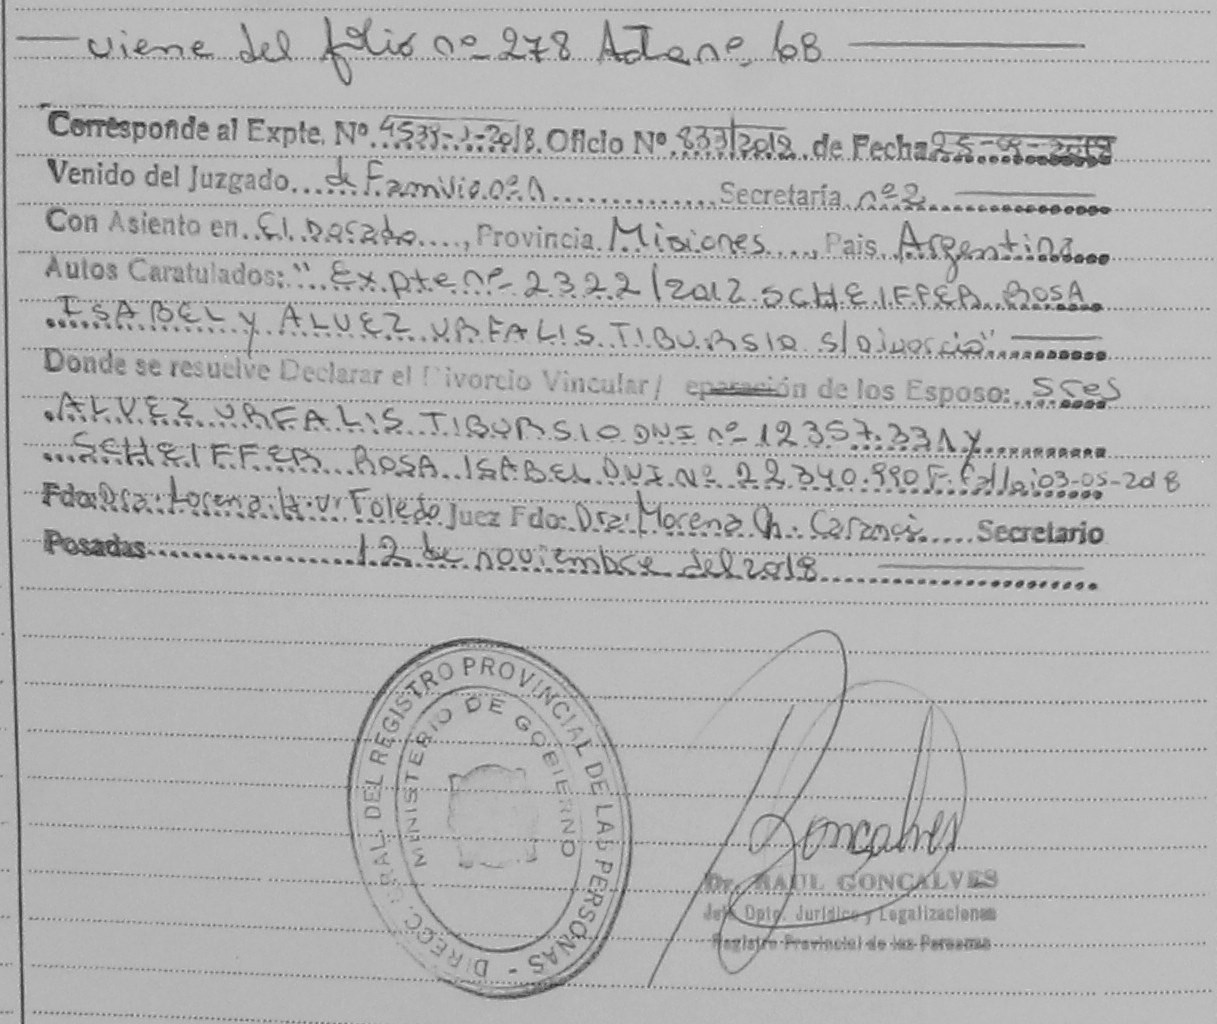 viene del folio nº 278 Acta nº 68
Corresponde al Expte. Nº 4538-J-2018. Oficio Nº 833/2018 de Fecha 25-09-2018
Venido del Juzgado de Familia nº 1 Secretaría nº 2
Con Asiento en El Dorado, Provincia Misiones, Pais Argentina
Autos Caratulados: " Expte nº 2322/2012 SCHEIFFER ROSA
ISABEL y ALVEZ URFALIS TIBURSIO s/Divorcio"
Donde se resuelve Declarar el Divorcio Vincular/ eparación de los Esposo: Sres
ALVEZ URFALIS TIBURSIO DNI nº 12357.331 y
SCHEIFFER ROSA ISABEL DNI Nº 22.340.990 F. Fallo: 03-05-2018
Fdo: Dra. Lorena Toledo Juez Fdo: Dra: Morena Secretario
Posadas 12 de noviembre del 2018
DIRECC. GRAL. DEL REGISTRO PROVINCIAL DE LAS PERSONAS -
MINISTERIO DE GOBIERNO
Goncalves
Dr. RAUL GONCALVES
Jefe Dpto. Jurídico y Legalizaciones
Registro Provincial de las Personas